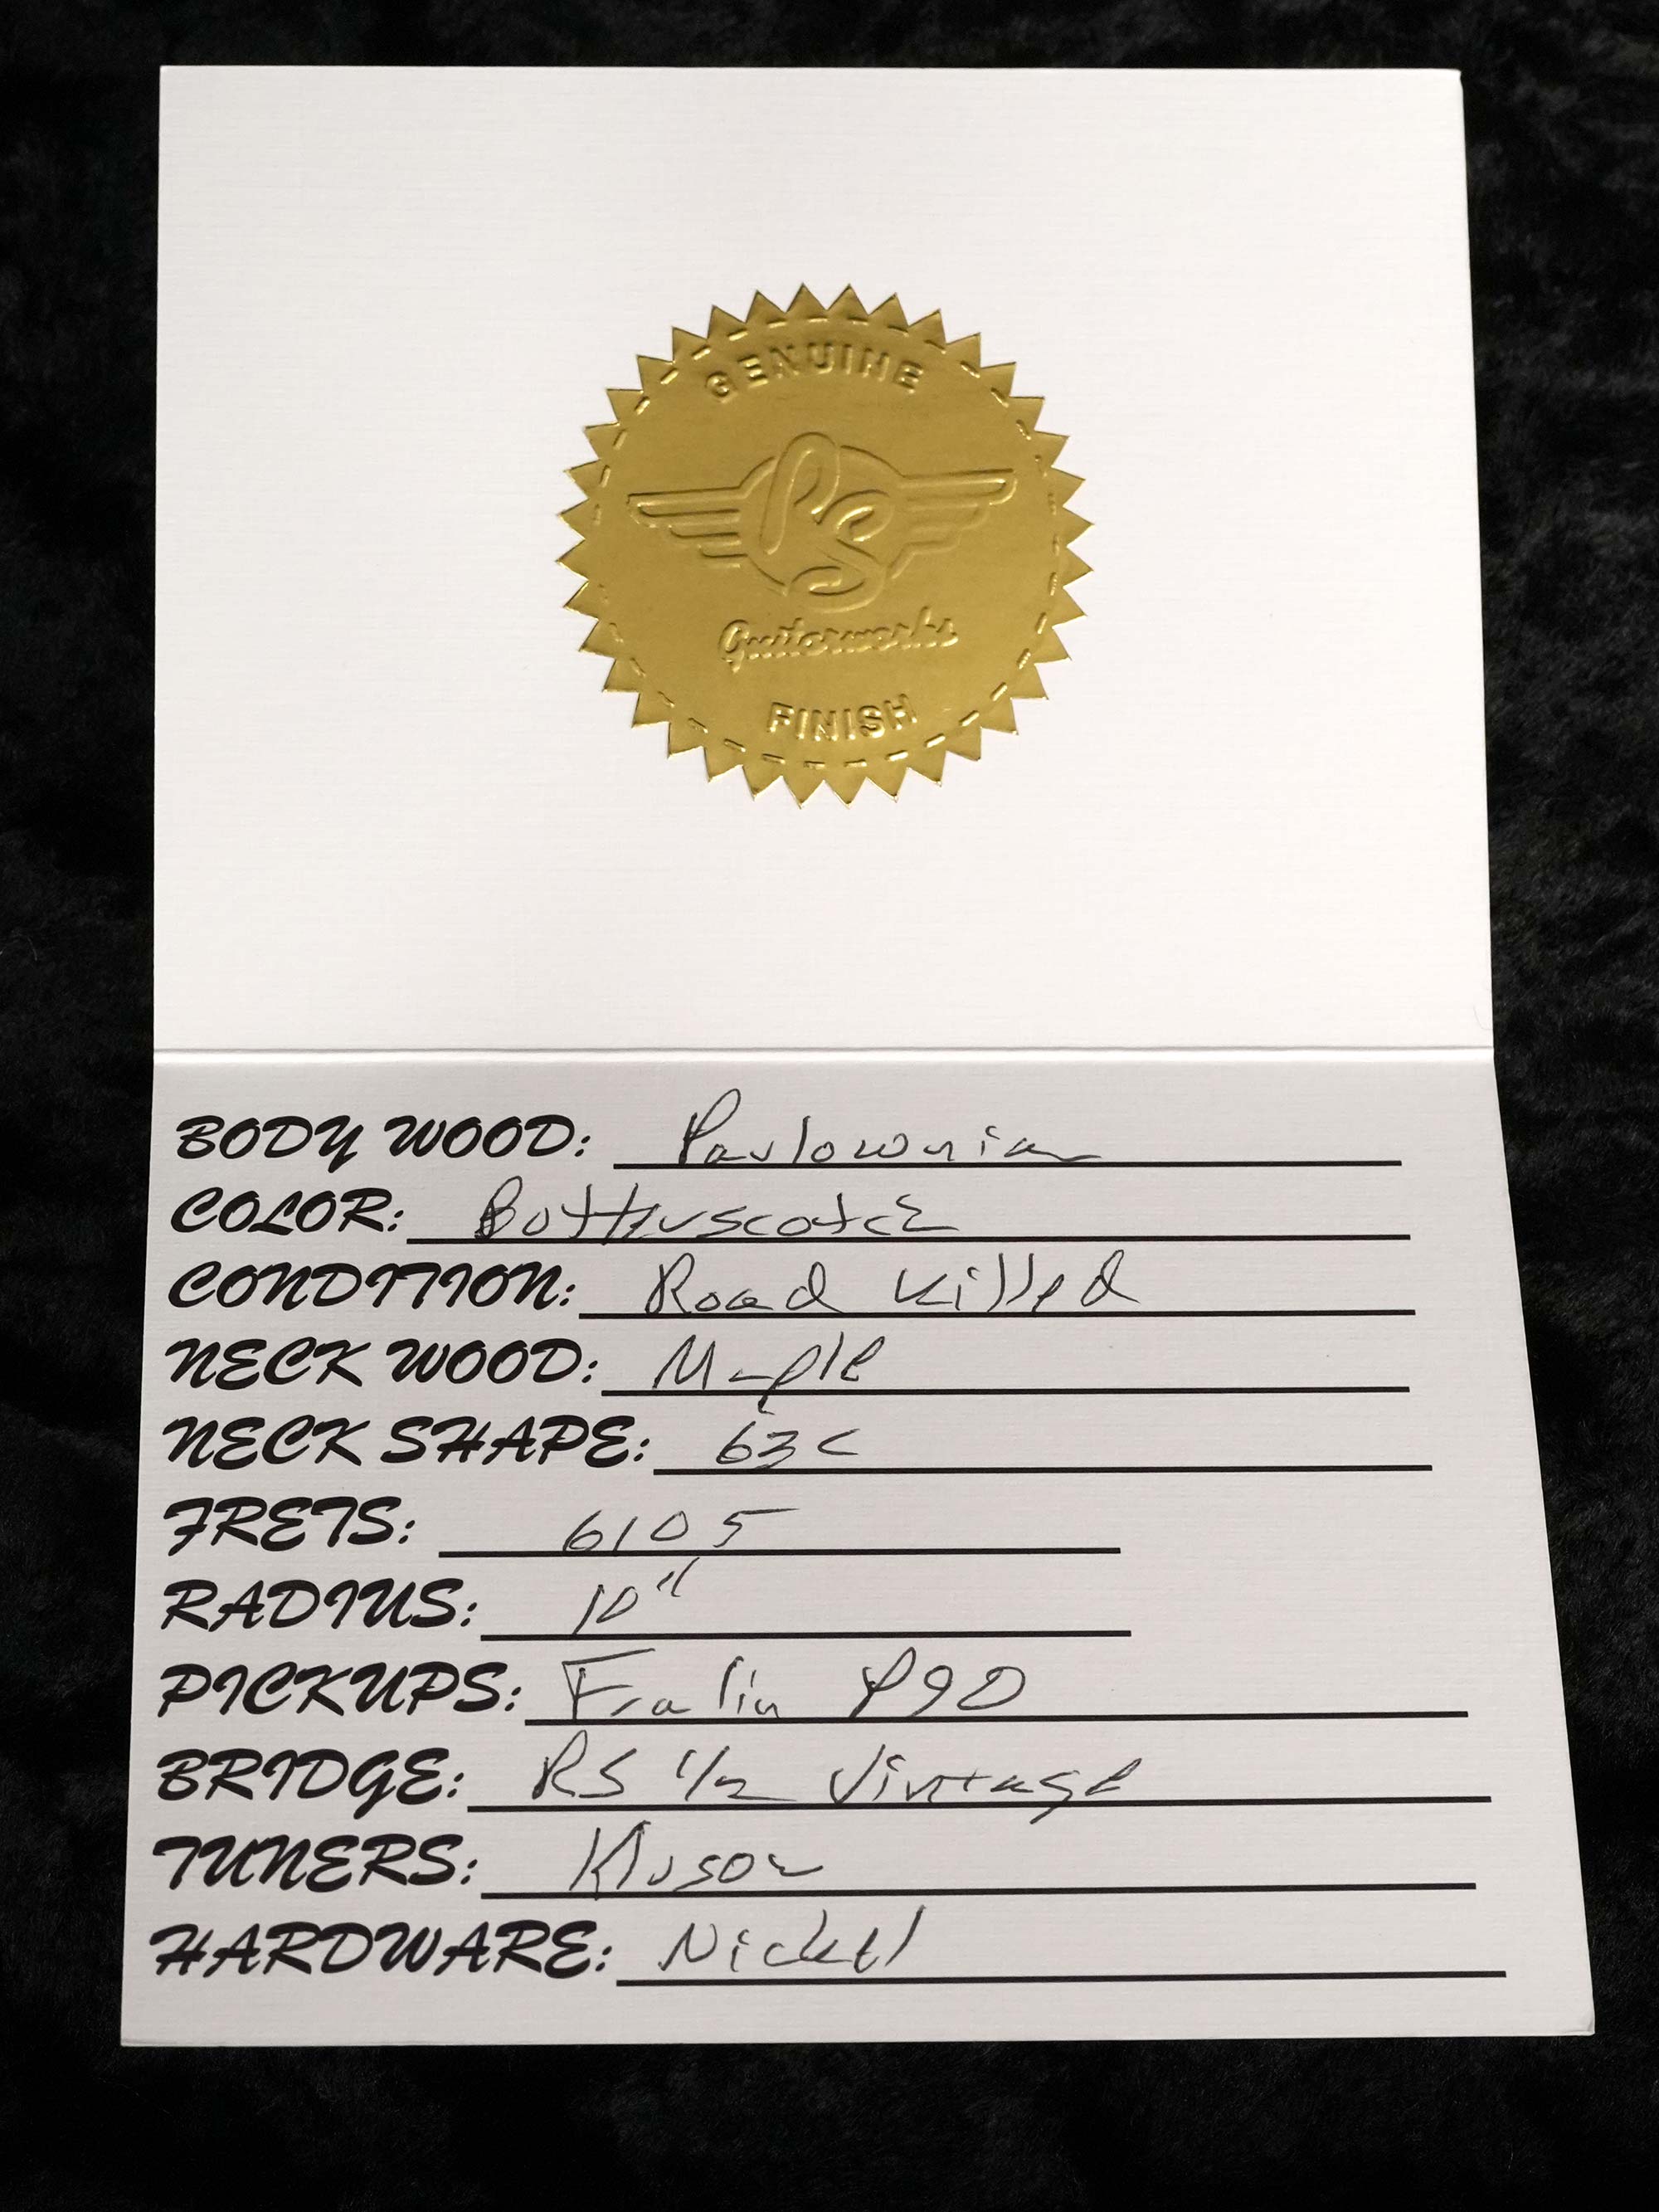 GENUINE
RS
Guitarworks
FINISH
BODY WOOD: Pavlownia
COLOR: Butterscotch
CONDITION: Road Killed
NECK WOOD: Maple
NECK SHAPE: 63 C
FRETS: 6105
RADIUS: 10"
PICKUPS: Fralin P90
BRIDGE: RS 1/2 Vintage
TUNERS: Kluson
HARDWARE: Nickel